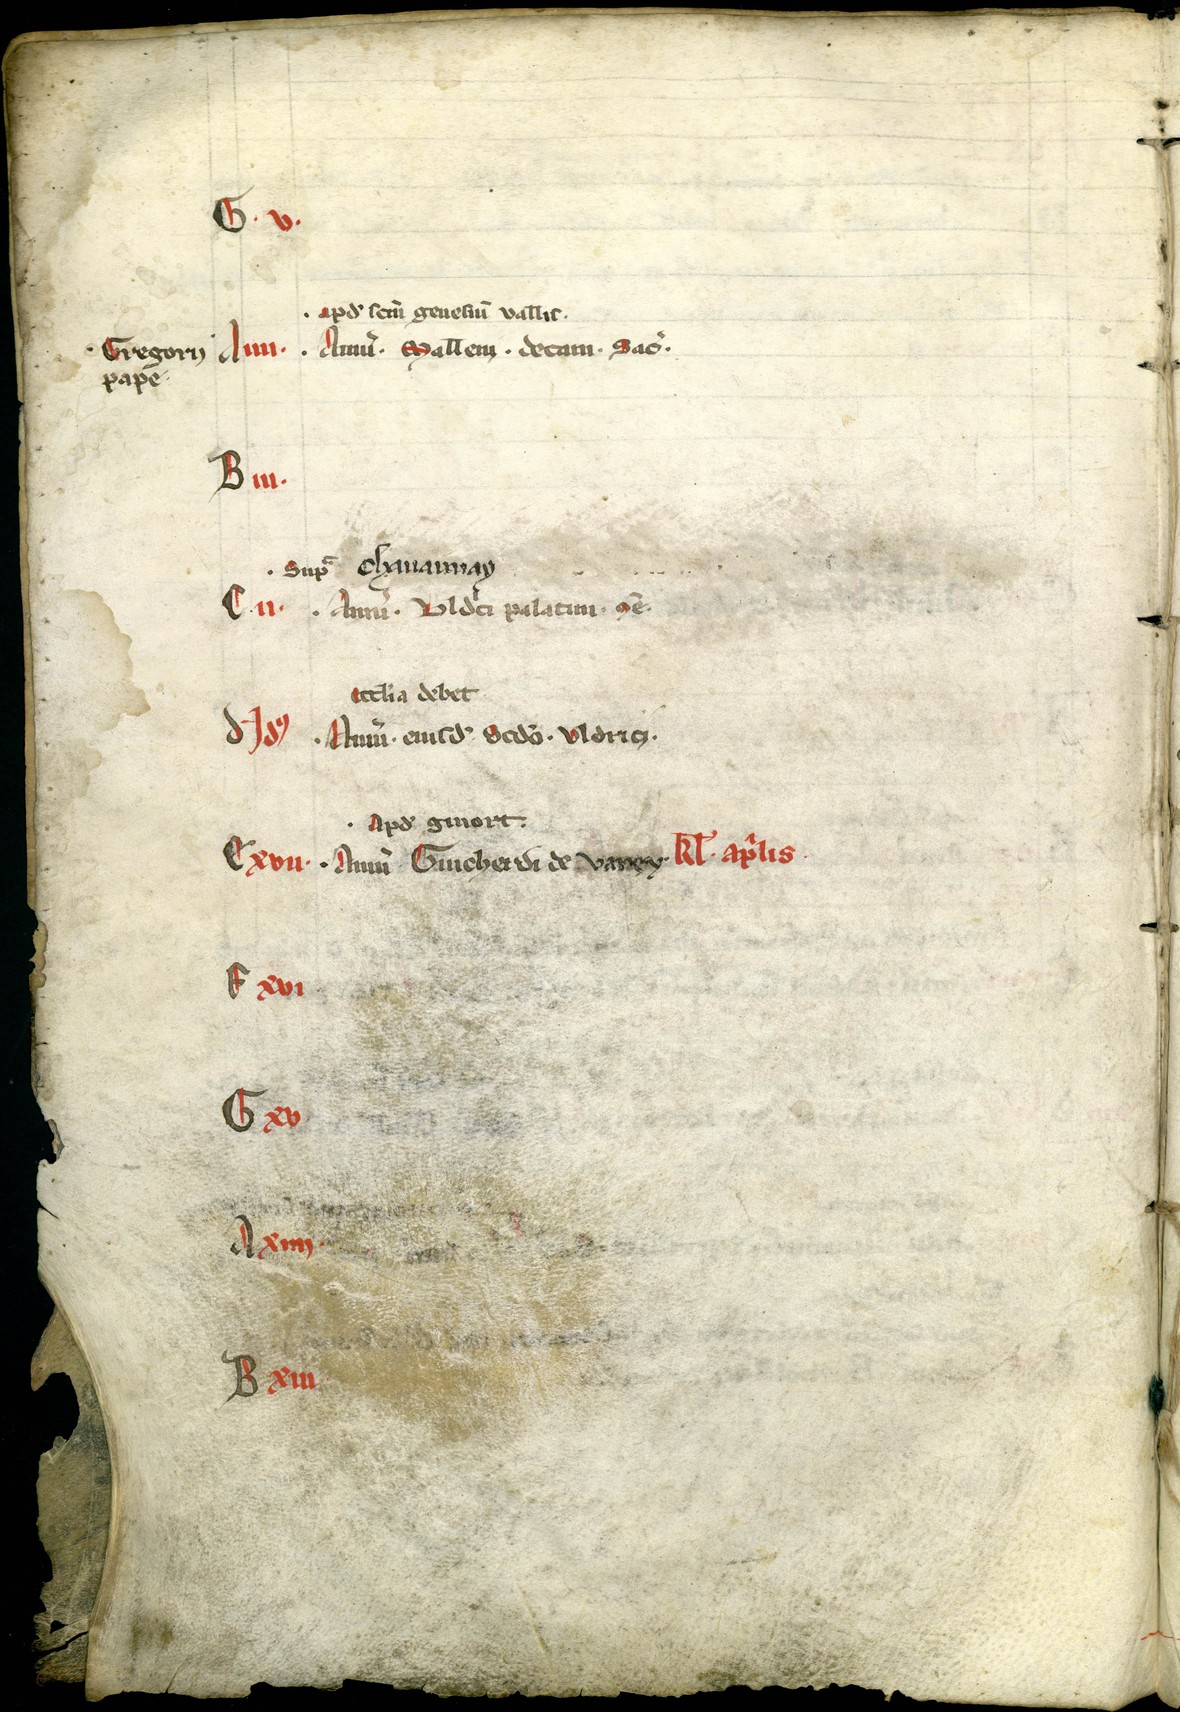 G · v ·
· apd' scm̄ genesiū vallis ·
· Gregorij A iiii · · Anniu̾ · Mallem · decani · Sac̾ ·
pape ·
B iii ·
· Sup̄ Chauannay
C · ii · · Anniu̾ · Vldr̾ci palatini ·
eccl̄ia debet
d Jd9 · Anniu̾ · eiusd' Scdō · Vldrici ·
· Apd' guiort ·
E xvii · · Anniu̾ Guicherdi de varey · kl̄ · ap̾lis ·
F xvi
G xv
A xiiii ·
B xiii